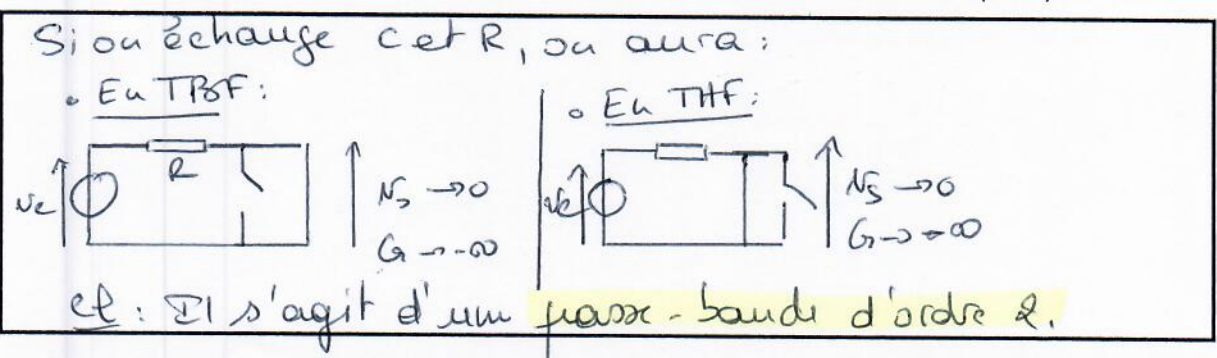 Si on échange C et R, on aura :
• En TBF :
• En THF :
R
ve
vs → 0
G → -∞
ve
vs → 0
G → -∞
cl : Il s'agit d'un passe-bande d'ordre 2.